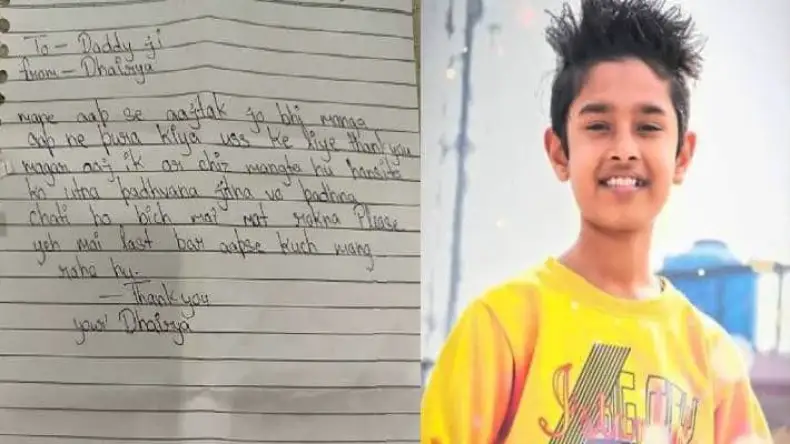 To - Daddy ji
from - Dhairya
mane aap se aajtak jo bhi manga
aap ne pura kiya uss ke liye thankyou
magar aaj ik or chiz mangta hu hansita
ko utna padhvana jitna vo padhna
chati ho bich mai mat rokna Please
yeh mai last bar aapse kuch mang
raha hu.
- Thankyou
your Dhairya